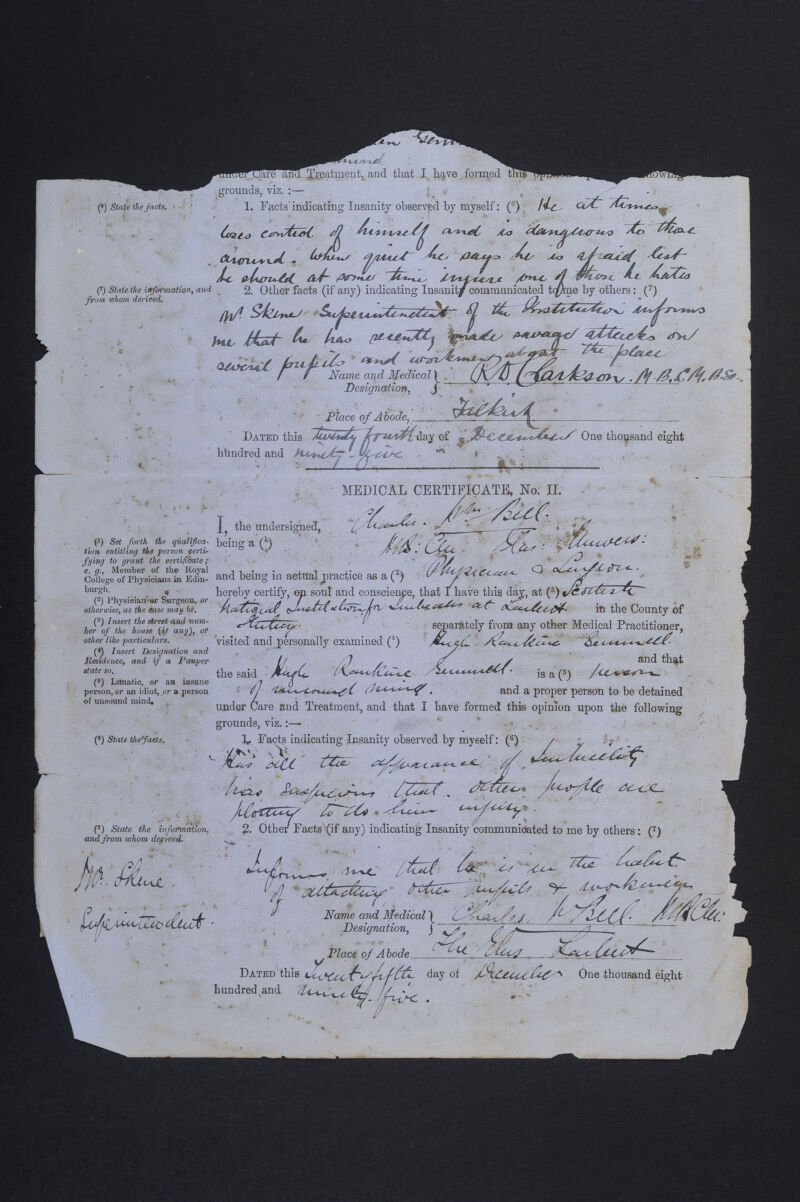 mind
under Care and Treatment, and that I have formed this
grounds, viz. :—
(6) State the facts.
1. Facts indicating Insanity observed by myself: (6) He at times
loses control of himself and is dangerous to those
around. When quiet he says he is afraid lest
he should at some time injure one of those he hates
(7) State the information, and
from whom derived.
2. Other facts (if any) indicating Insanity communicated to me by others: (7)
Mr Skene Superintendent of the Institution informs
me that he has recently made savage attacks on
several pupils and workmen about the place
Name and Medical
Designation,
R D Clarkson. M.B.C.M. B.Sc.
Place of Abode, Falkirk
DATED this twenty fourth day of December One thousand eight
hundred and ninety-five
MEDICAL CERTIFICATE, No. II.
I, the undersigned, Charles. Wm Bell.
(1) Set forth the qualifica-
tion entitling the person certi-
fying to grant the certificate;
e. g., Member of the Royal
College of Physicians in Edin-
burgh.
(2) Physician or Surgeon, or
otherwise, as the case may be.
(3) Insert the street and num-
ber of the house (if any), or
other like particulars.
(4) Insert Designation and
Residence, and if a Pauper
state so.
(5) Lunatic, or an insane
person, or an idiot, or a person
of unsound mind.
being a (1) M.B: Cm. Glas: Univers:
and being in actual practice as a (2) Physician & Surgeon.
hereby certify, on soul and conscience, that I have this day, at (3) Scottish
National Institution for Imbeciles at Larbert in the County of
Stirling separately from any other Medical Practitioner,
visited and personally examined (4) Hugh Rankine Semmell.
and that
the said Hugh Rankine Semmell. is a (5) person
of unsound mind. and a proper person to be detained
under Care and Treatment, and that I have formed this opinion upon the following
grounds, viz. :—
(6) State the facts.
1. Facts indicating Insanity observed by myself: (6)
Has all the appearance of Imbecility
has suspicions that other people are
plotting to do him injury
(7) State the information,
and from whom derived.
2. Other Facts (if any) indicating Insanity communicated to me by others: (7)
Mr. Skene.
Superintendent.
Informs me that he is in the habit
of attacking other pupils & workmen
Name and Medical
Designation,
Charles W Bell. M.B.Cm:
Place of Abode The Elms Larbert
DATED this Twenty fifth day of December One thousand eight
hundred and ninety-five.